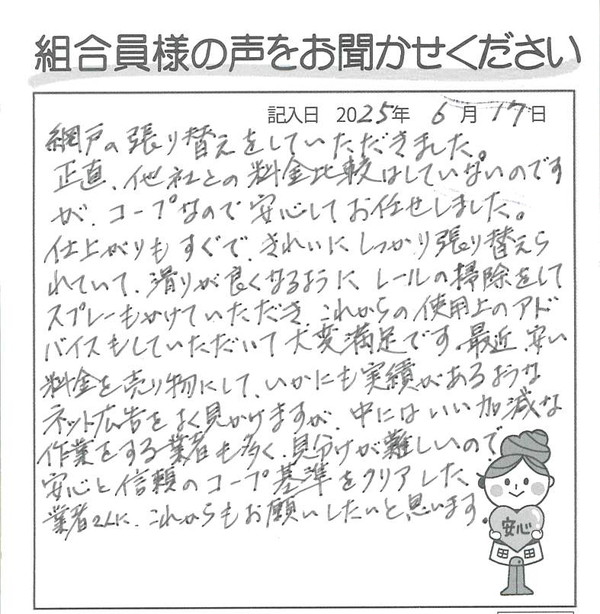 組合員様の声をお聞かせください
記入日 2025年 6月 17日
網戸の張り替えをしていただきました。
正直、他社との料金比較はしていないのです
が、コープなので安心してお任せしました。
仕上がりもすぐで、きれいにしっかり張り替えら
れていて、滑りが良くなるように、レールの掃除をして
スプレーもかけていただき、これからの使用上のアド
バイスもしていただいて大変満足です。最近、安い
料金を売り物にして、いかにも実績があるような
ネット広告をよく見かけますが、中にはいい加減な
作業をする業者も多く、見分けが難しいので
安心と信頼のコープ基準をクリアした
業者さんに、これからもお願いしたいと思います。
安心